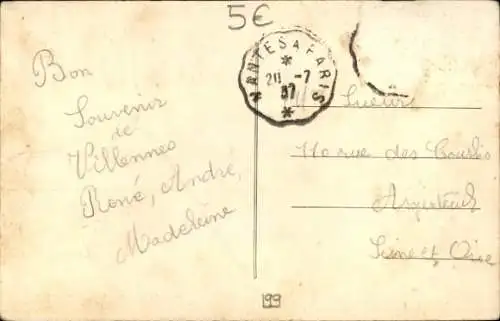 5€
NANTES A PARIS
20 -7
37
Bon
Souvenir
de
Villennes
René, André,
Madeleine
M Sueur
rue des
Argenteuil
Seine et Oise
199